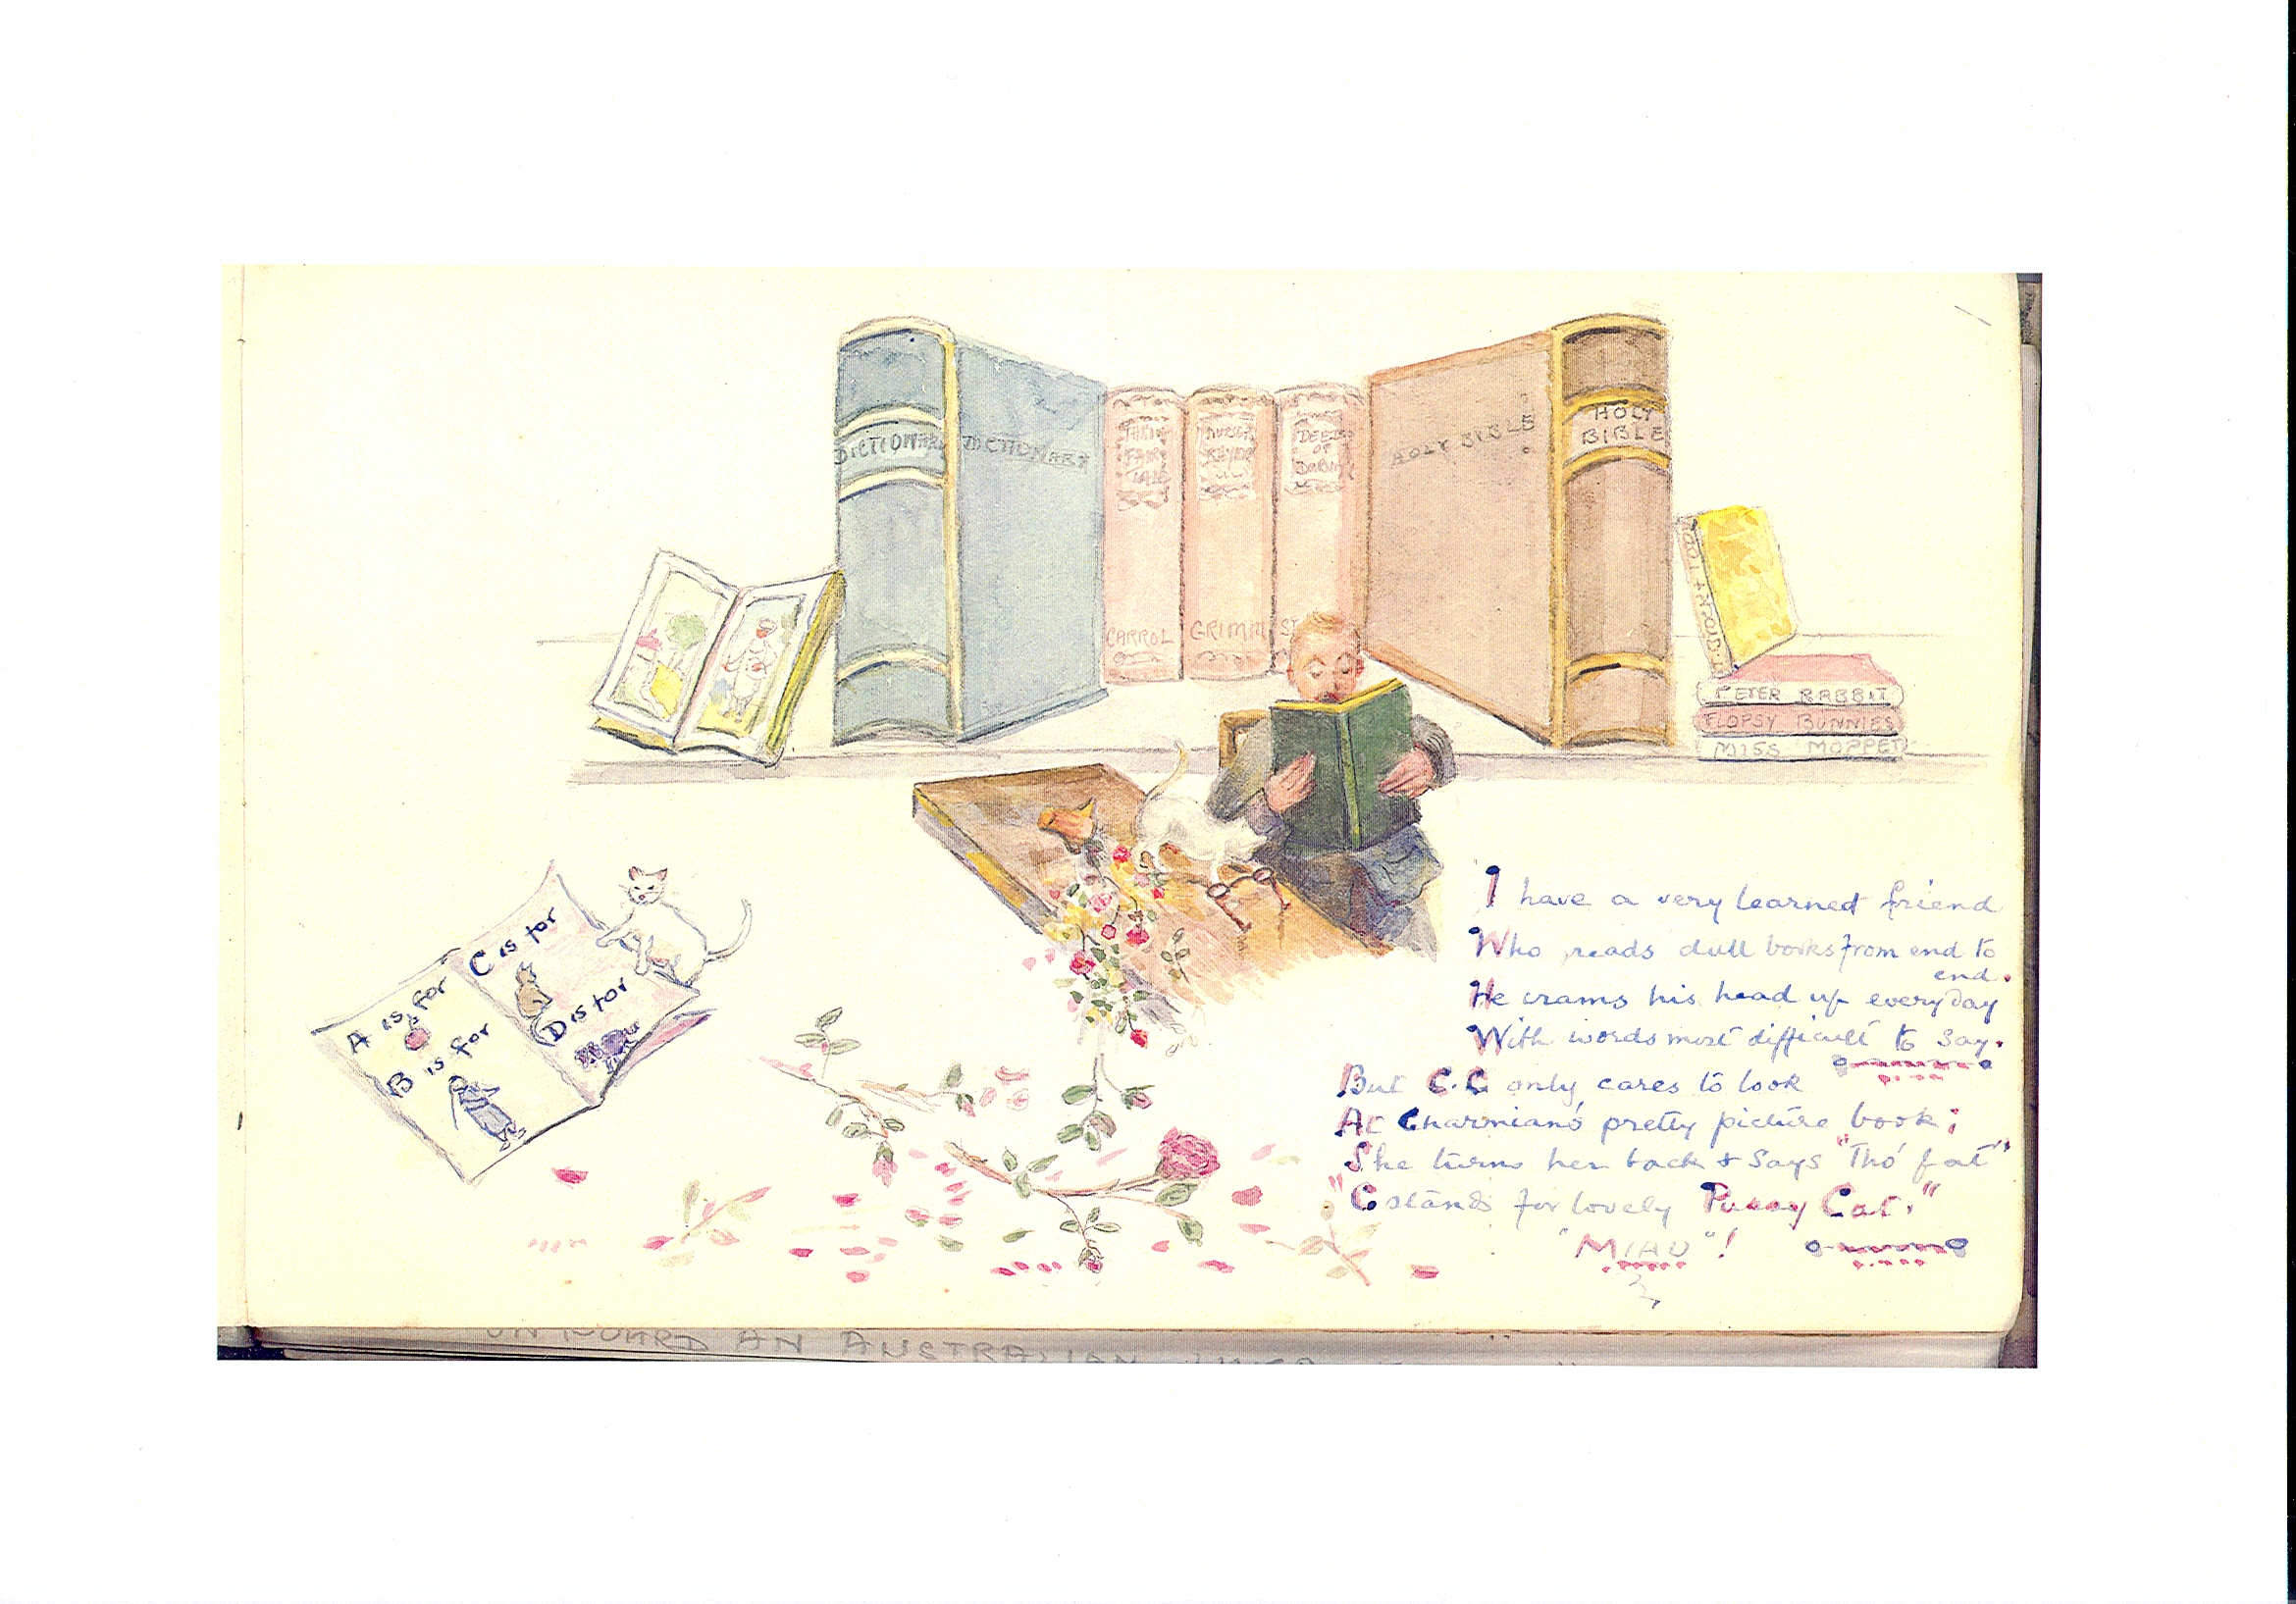 DICTIONARY DICTIONARY
FAIRY
NURSERY
RHYMES
DEEDS
OF
HOLY BIBLE
HOLY
BIBLE
CARROL
GRIMM
ST
PETER RABBIT
FLOPSY BUNNIES
MISS MOPPET
A is for
B is for
C is for
D is for
I have a very learned friend
Who reads dull books from end to
end.
He crams his head up every day
With words most difficult to say.
But C.C only cares to look
At Charmian's pretty picture book;
She turns her back & says "Tho' fat"
"C stands for lovely Pussy Cat."
"MIAU"!
ON BOARD AN AUSTRALIAN